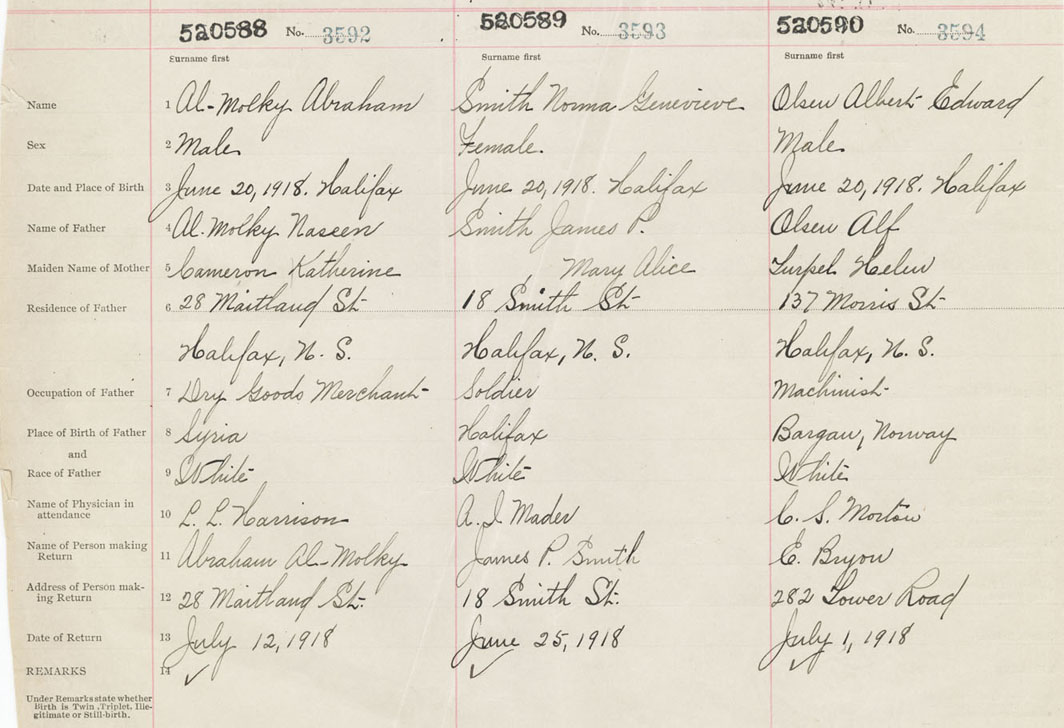 520588 No. 3592 520589 No. 3593 520590 No. 3594
Surname first Surname first Surname first
Name 1 Al-Molky Abraham Smith Norma Genevieve Olsen Albert Edward
Sex 2 Male Female. Male
Date and Place of Birth 3 June 20, 1918. Halifax June 20, 1918. Halifax June 20, 1918. Halifax
Name of Father 4 Al-Molky Naseen Smith James P. Olsen Alf
Maiden Name of Mother 5 Cameron Katherine , Mary Alice Turpel Helen
Residence of Father 6 28 Maitland St 18 Smith St 137 Morris St
Halifax, N. S. Halifax, N. S. Halifax, N. S.
Occupation of Father 7 Dry Goods Merchant Soldier Machinist
Place of Birth of Father 8 Syria Halifax Bargan, Norway
and
Race of Father 9 White White White
Name of Physician in
attendance 10 L. L. Harrison A. J. Mader C. S. Morton
Name of Person making
Return 11 Abraham Al-Molky James P. Smith E. Bryon
Address of Person mak-
ing Return 12 28 Maitland St. 18 Smith St. 282 Tower Road
Date of Return 13 July 12, 1918 June 25, 1918 July 1, 1918
REMARKS 14 ✓ ✓ ✓
Under Remarks state whether
Birth is Twin, Triplet, Ille-
gitimate or Still-birth.